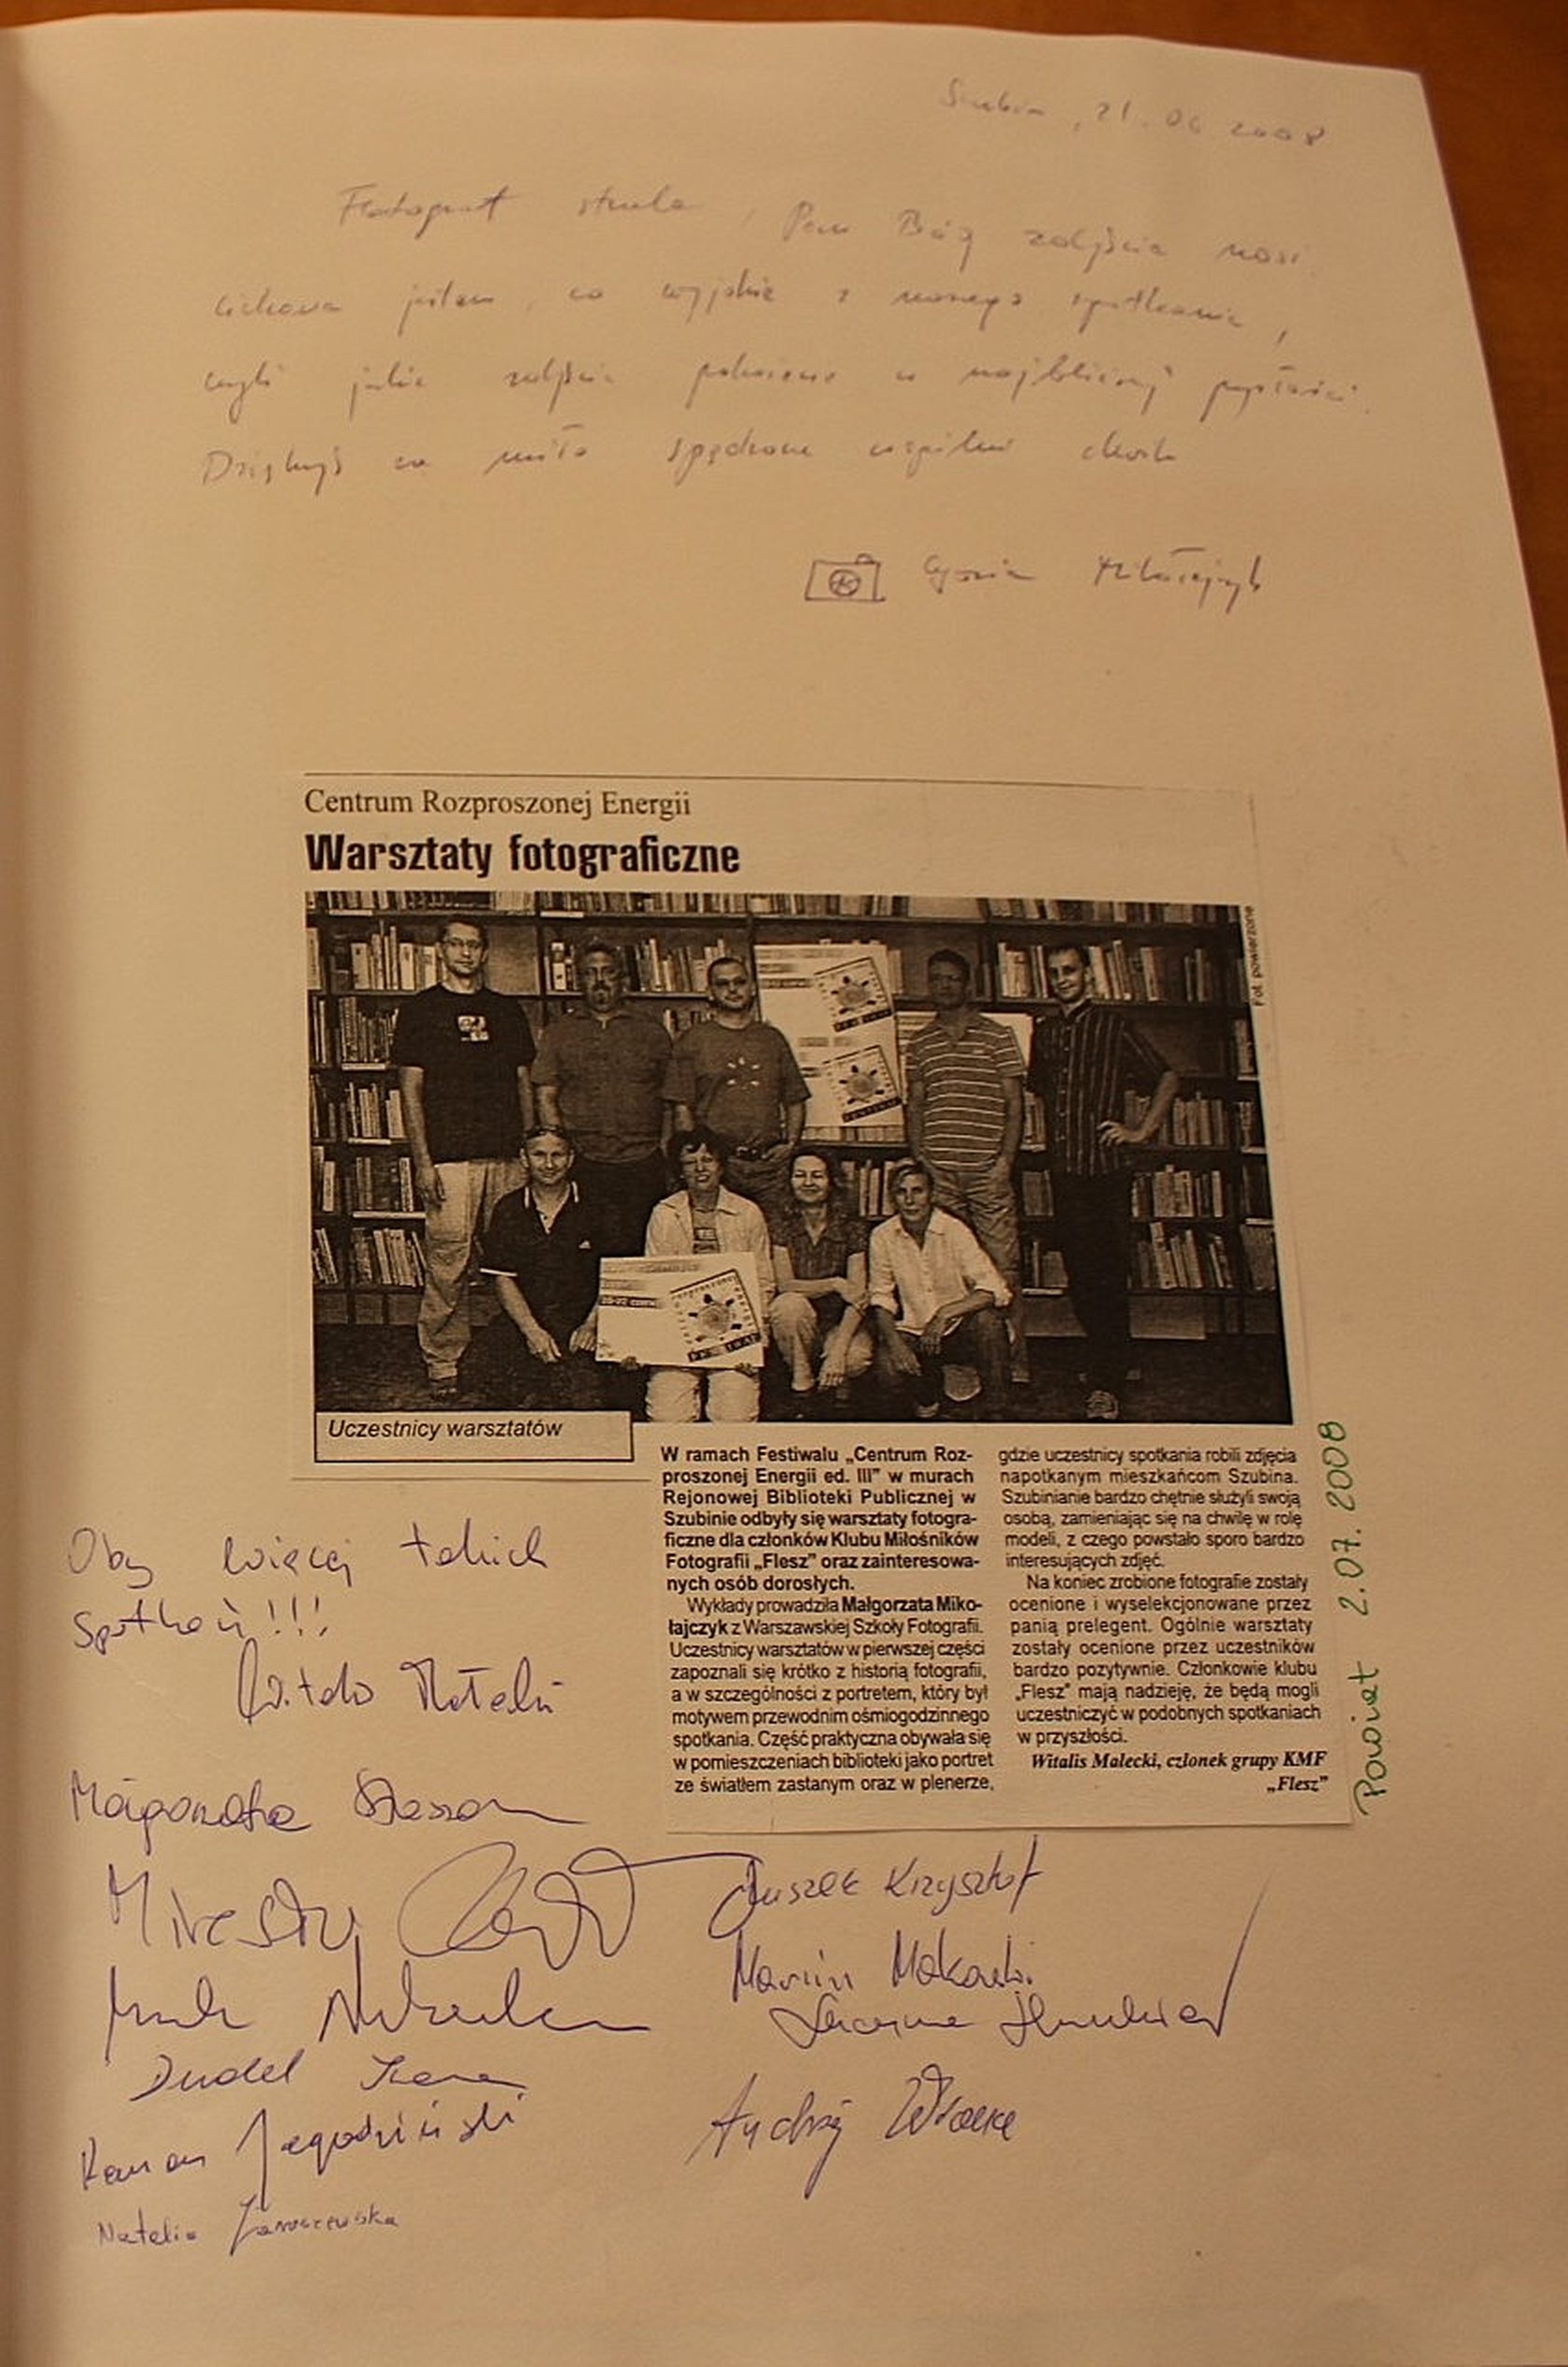 Szubin, 21.06.2008
Fotograf strzela, Pan Bóg zdjęcia nosi.
Ciekawa jestem, co wyjdzie z naszego spotkania,
czyli jakie zdjęcia pokażecie w najbliższej przyszłości.
Dziękuję za miło spędzone wspólnie chwile
Mikołajczyk
Centrum Rozproszonej Energii
Warsztaty fotograficzne
Fot. powierzone
FESTIWAL
Uczestnicy warsztatów
W ramach Festiwalu „Centrum Roz-
proszonej Energii ed. III” w murach
Rejonowej Biblioteki Publicznej w
Szubinie odbyły się warsztaty fotogra-
ficzne dla członków Klubu Miłośników
Fotografii „Flesz” oraz zainteresowa-
nych osób dorosłych.
Wykłady prowadziła Małgorzata Miko-
łajczyk z Warszawskiej Szkoły Fotografii.
Uczestnicy warsztatów w pierwszej części
zapoznali się krótko z historią fotografii,
a w szczególności z portretem, który był
motywem przewodnim ośmiogodzinnego
spotkania. Część praktyczna obywała się
w pomieszczeniach biblioteki jako portret
ze światłem zastanym oraz w plenerze,
gdzie uczestnicy spotkania robili zdjęcia
napotkanym mieszkańcom Szubina.
Szubinianie bardzo chętnie służyli swoją
osobą, zamieniając się na chwilę w rolę
modeli, z czego powstało sporo bardzo
interesujących zdjęć.
Na koniec zrobione fotografie zostały
ocenione i wyselekcjonowane przez
panią prelegent. Ogólnie warsztaty
zostały ocenione przez uczestników
bardzo pozytywnie. Członkowie klubu
„Flesz” mają nadzieję, że będą mogli
uczestniczyć w podobnych spotkaniach
w przyszłości.
Witalis Malecki, członek grupy KMF
„Flesz”
Powiat 2.07.2008
Oby więcej takich
spotkań!!!
Małgorzata
Juszek Krzysztof
Marcin
Dudel
Andrzej
Roman Jagodziński
Natalia Jaroszewska